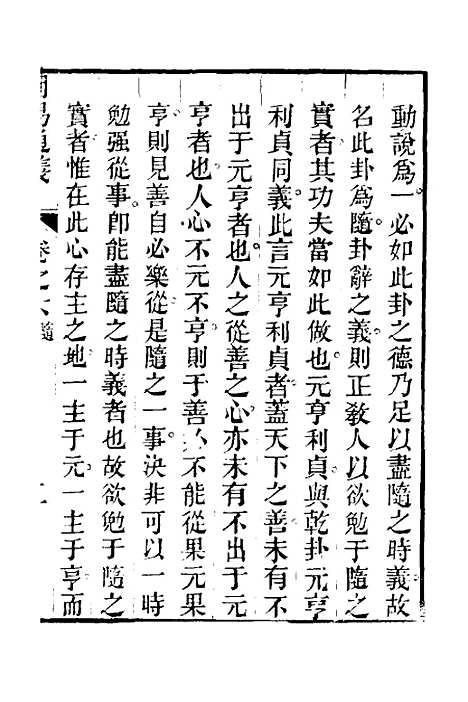 動說爲一必如此卦之德乃足以盡隨之時義故
名此卦爲隨卦辭之義則正教人以欲勉于隨之
實者其功夫當如此做也元亨利貞與乾卦元亨
利貞同義此言元亨利貞者蓋天下之善未有不
出于元亨者也人之從善之心亦未有不出于元
亨者也人心不元不亨則于善必不能從果元果
亨則見善自必樂從是隨之一事決非可以一時
勉强從事卽能盡隨之時義者也故欲勉于隨之
實者惟在此心存主之地一主于元一主于亨而
周易通義 卷之六 隨